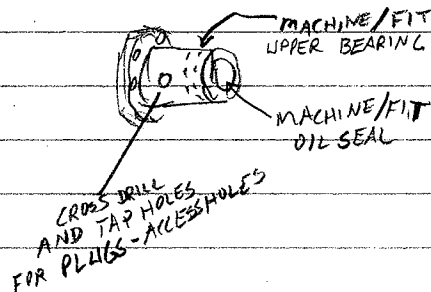 MACHINE/FIT
UPPER BEARING
MACHINE/FIT
OIL SEAL
CROSS DRILL
AND TAP HOLES
FOR PLUGS-ACCESSHOLES